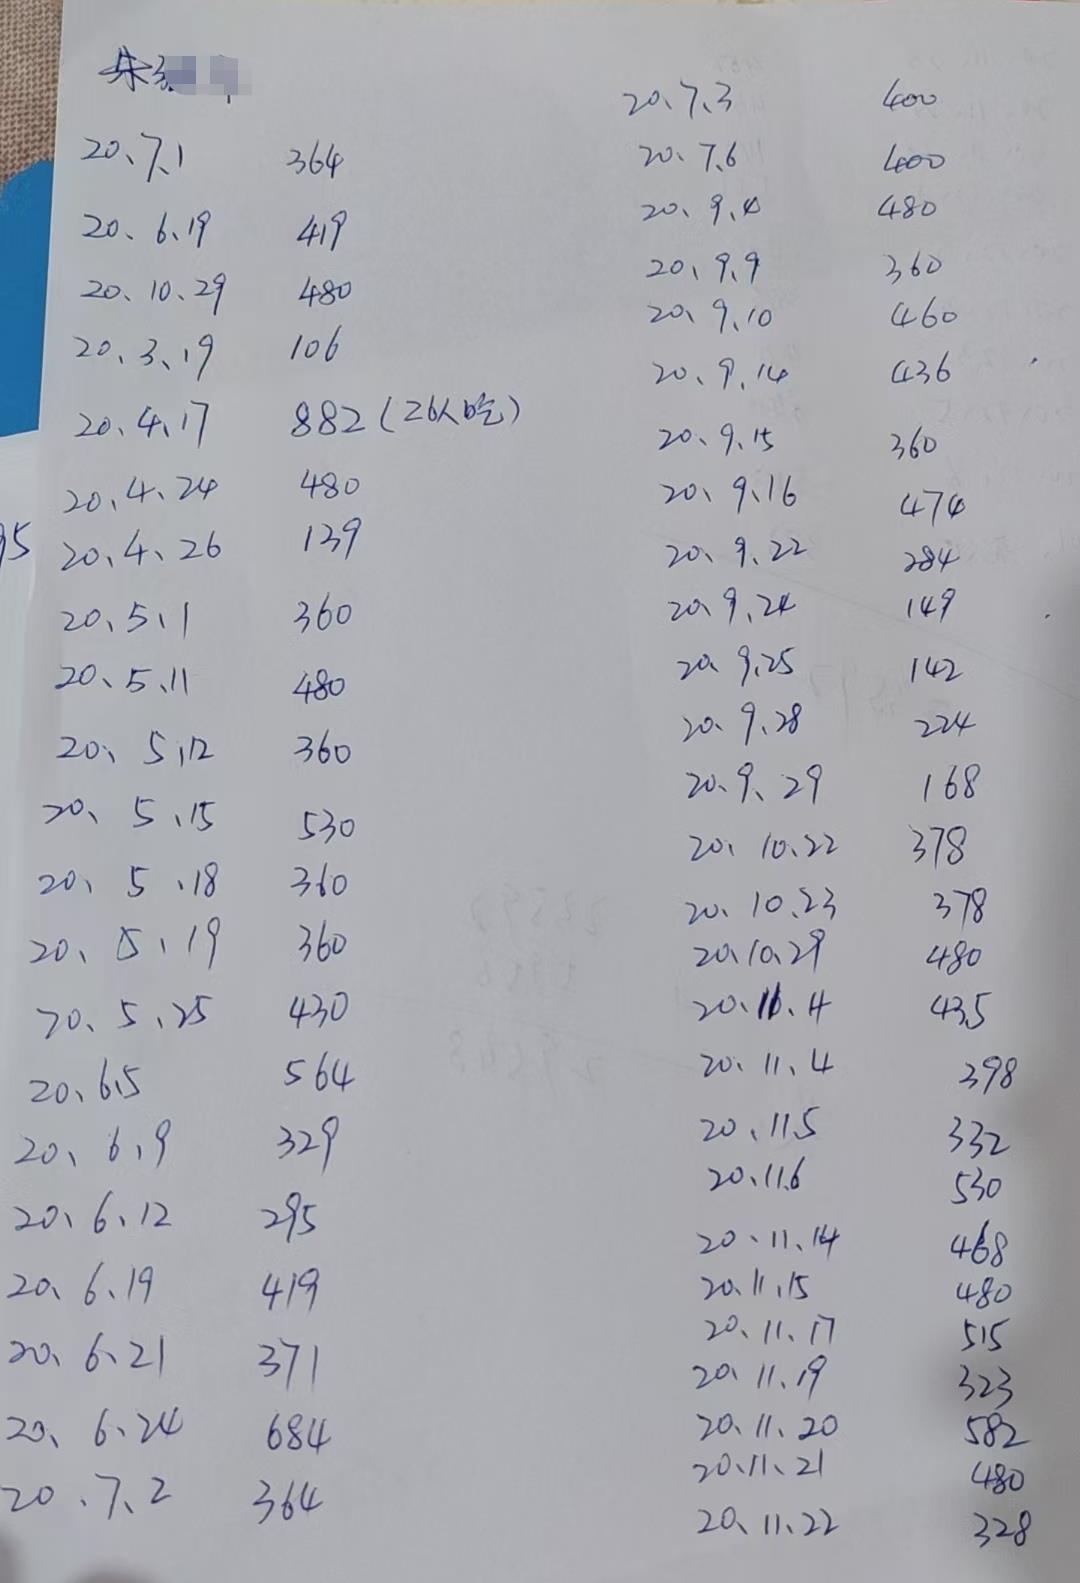 朱
20、7、1 364
20、6、19 419
20、10、29 480
20、3、19 106
20、4、17 882(26人吃)
20、4、24 480
20、4、26 139
20、5、1 360
20、5、11 480
20、5、12 360
20、5、15 530
20、5、18 360
20、5、19 360
20、5、25 430
20、6、5 564
20、6、9 329
20、6、12 295
20、6、19 419
20、6、21 371
20、6、24 684
20、7、2 364
20、7、3 400
20、7、6 400
20、9、4 480
20、9、9 360
20、9、10 460
20、9、14 436
20、9、15 360
20、9、16 474
20、9、22 284
20、9、24 149
20、9、25 142
20、9、28 224
20、9、29 168
20、10、22 378
20、10、23 378
20、10、29 480
20、11、4 435
20、11、4 398
20、11、5 332
20、11、6 530
20、11、14 468
20、11、15 480
20、11、17 515
20、11、19 323
20、11、20 582
20、11、21 480
20、11、22 328